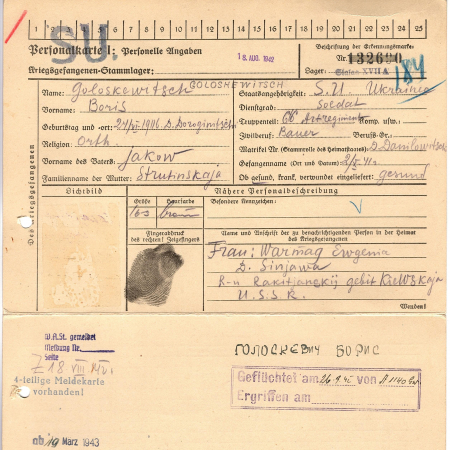 1 2 3 4 5 6 7 8 9 10 11 12 13 14 15 16 17 18 19 20 21 22 23 24 25
SU.
Personalkarte I: Personelle Angaben
18. AUG. 1942
Beschriftung der Erkennungsmarke
Nr. 132690
Kriegsgefangenen-Stammlager:
Lager: Stalag XVII A
184
Des Kriegsgefangenen
Name: Goloskewitsch
GOLOSKEWITSCH
Vorname: Boris
Geburtstag und -ort:
Religion: Orth
Vorname des Vaters: Jakow
Familienname der Mutter: Strutinskaja
Staatsangehörigkeit: S.U. Ukrainer
Dienstgrad: Soldat
Truppenteil:
Zivilberuf: Bauer Berufs-Gr.
Matrikel Nr. (Stammrolle des Heimatstaates) D. Danilowitsch
Gefangennahme (Ort und Datum)
Ob gesund, krank, verwundet eingeliefert: gesund
Lichtbild
Nähere Personalbeschreibung
Größe
Haarfarbe
163 braun
Besondere Kennzeichen:
Fingerabdruck
des rechten! Zeigefingers
Name und Anschrift der zu benachrichtigenden Person in der Heimat
des Kriegsgefangenen
Frau: Warmag Ewgenia
D. Sinjawa
R-n Rakitjanskij gebit Kiewskaja
U.S.S.R.
Wenden!
W.A.St. gemeldet
Meldung Nr.
Seite
4-teilige Meldekarte
vorhanden!
ГОЛОСКЕВИЧ БОРИС
Geflüchtet am von
Ergriffen am
ab 19 März 1943